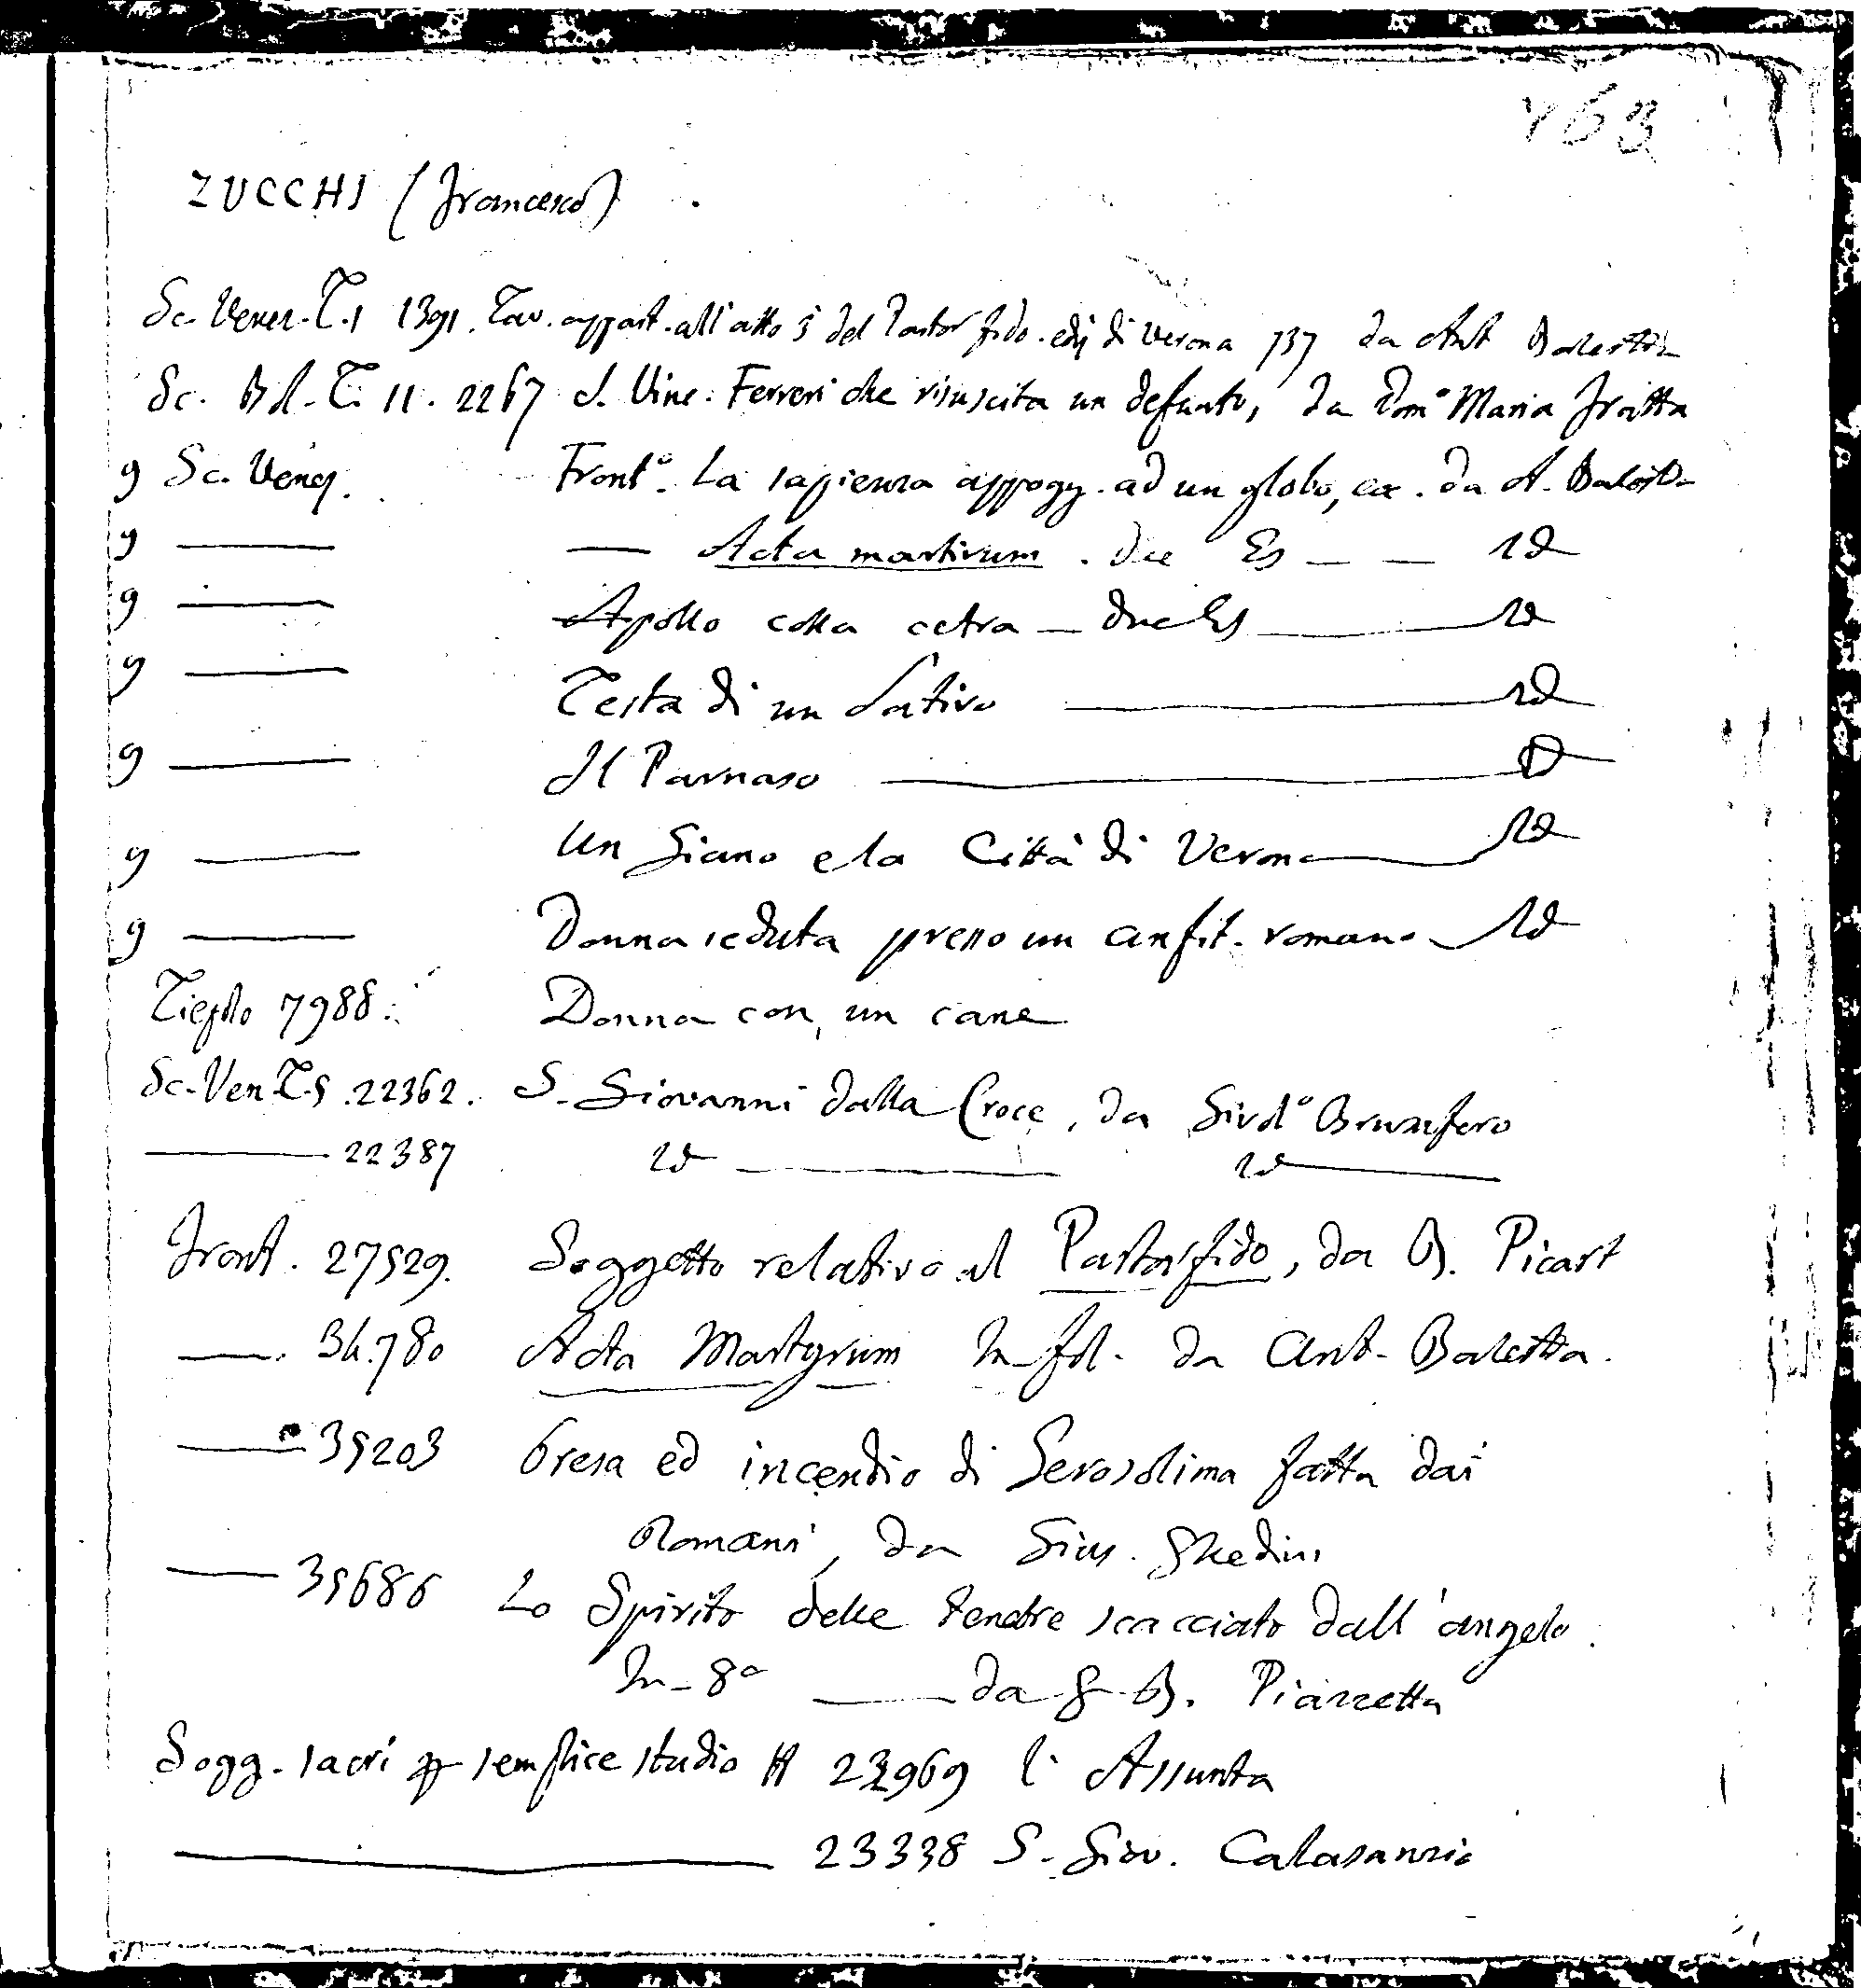 763
ZUCCHI (Francesco)
Sc. Venez. T. 1 1391. Tav. appart. all'atto 5 del Pastor fido. ediz di Verona 737 da Ant Balestra
Sc. Bol. T. 11. 2267 S. Vinc. Ferreri che risuscita un defunto, da Dom.º Maria Fratta
9 Sc. Venez. Front.º La sapienza appogg. ad un globo, ec. da A. Balest.
9 —— — Acta martirum. Due Es — — Id
9 —— Apollo colla cetra — due Es —— Id
9 —— Testa di un Satiro —— Id
9 —— Il Parnaso —— Id
9 —— Un Giano e la Città di Verona —— Id
9 —— Donna seduta presso un anfit. romano — Id
Tiepolo 7988. Donna con un cane
Sc. Ven. T. 5. 22362. S. Giovanni dalla Croce, da Girol.º Brusaferro
—— 22387 Id —— Id ——
Front. 27529. Soggetto relativo al Pastorfido, da B. Picart
—— 34.780 Acta Martyrum In fol. da Ant. Balestra.
—— 35203 Presa ed incendio di Gerosolima fatta dai
Romani, da Gius. Ghedini
—— 35686 Lo Spirito delle tenebre scacciato dall'angelo.
In-8º —— da G. B. Piazzetta
Sogg. sacri p semplice studio H 22969 l'Assunta
—— 23338 S. Giov. Calasanzio